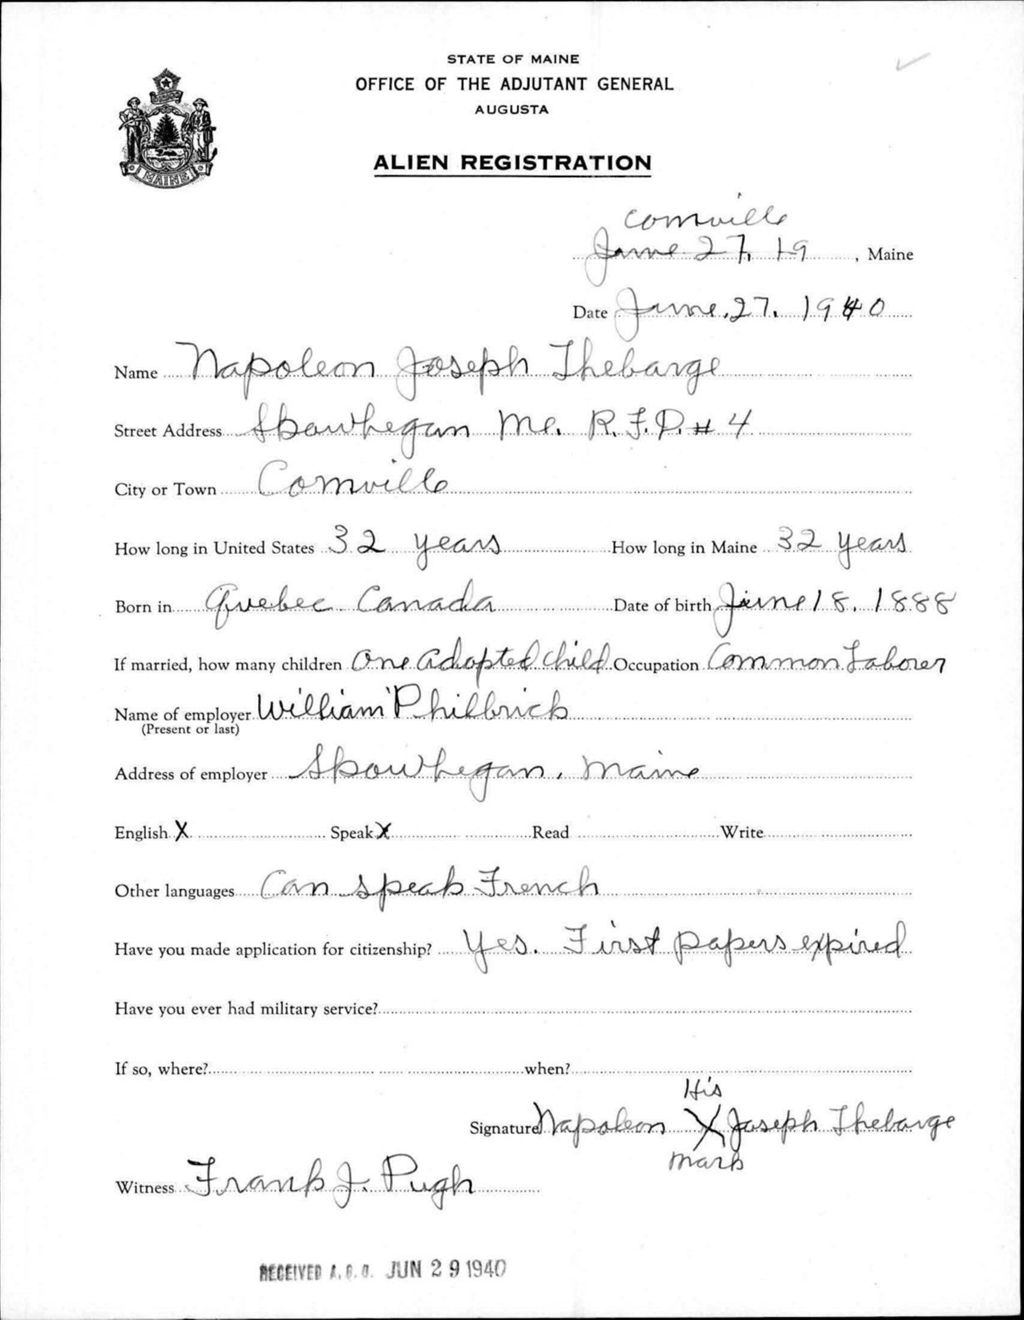 STATE OF MAINE
OFFICE OF THE ADJUTANT GENERAL
AUGUSTA
MAINE
ALIEN REGISTRATION
Cornville
June 27, 19 , Maine
Date June, 27, 1940
Name Napoleon Joseph Thebarge
Street Address Skowhegan Me. R.F.D. # 4
City or Town Cornville
How long in United States 32 years How long in Maine 32 years
Born in Quebec Canada Date of birth June 18, 1888
If married, how many children One adopted child Occupation Common Laborer
Name of employer William Philbrick
(Present or last)
Address of employer Skowhegan, Maine
English X Speak X Read Write
Other languages Can speak French
Have you made application for citizenship? Yes. First papers expired
Have you ever had military service?
If so, where? when?
His
Signature Napoleon X Joseph Thebarge
mark
Witness Frank J. Pugh
RECEIVED A.G.O. JUN 29 1940